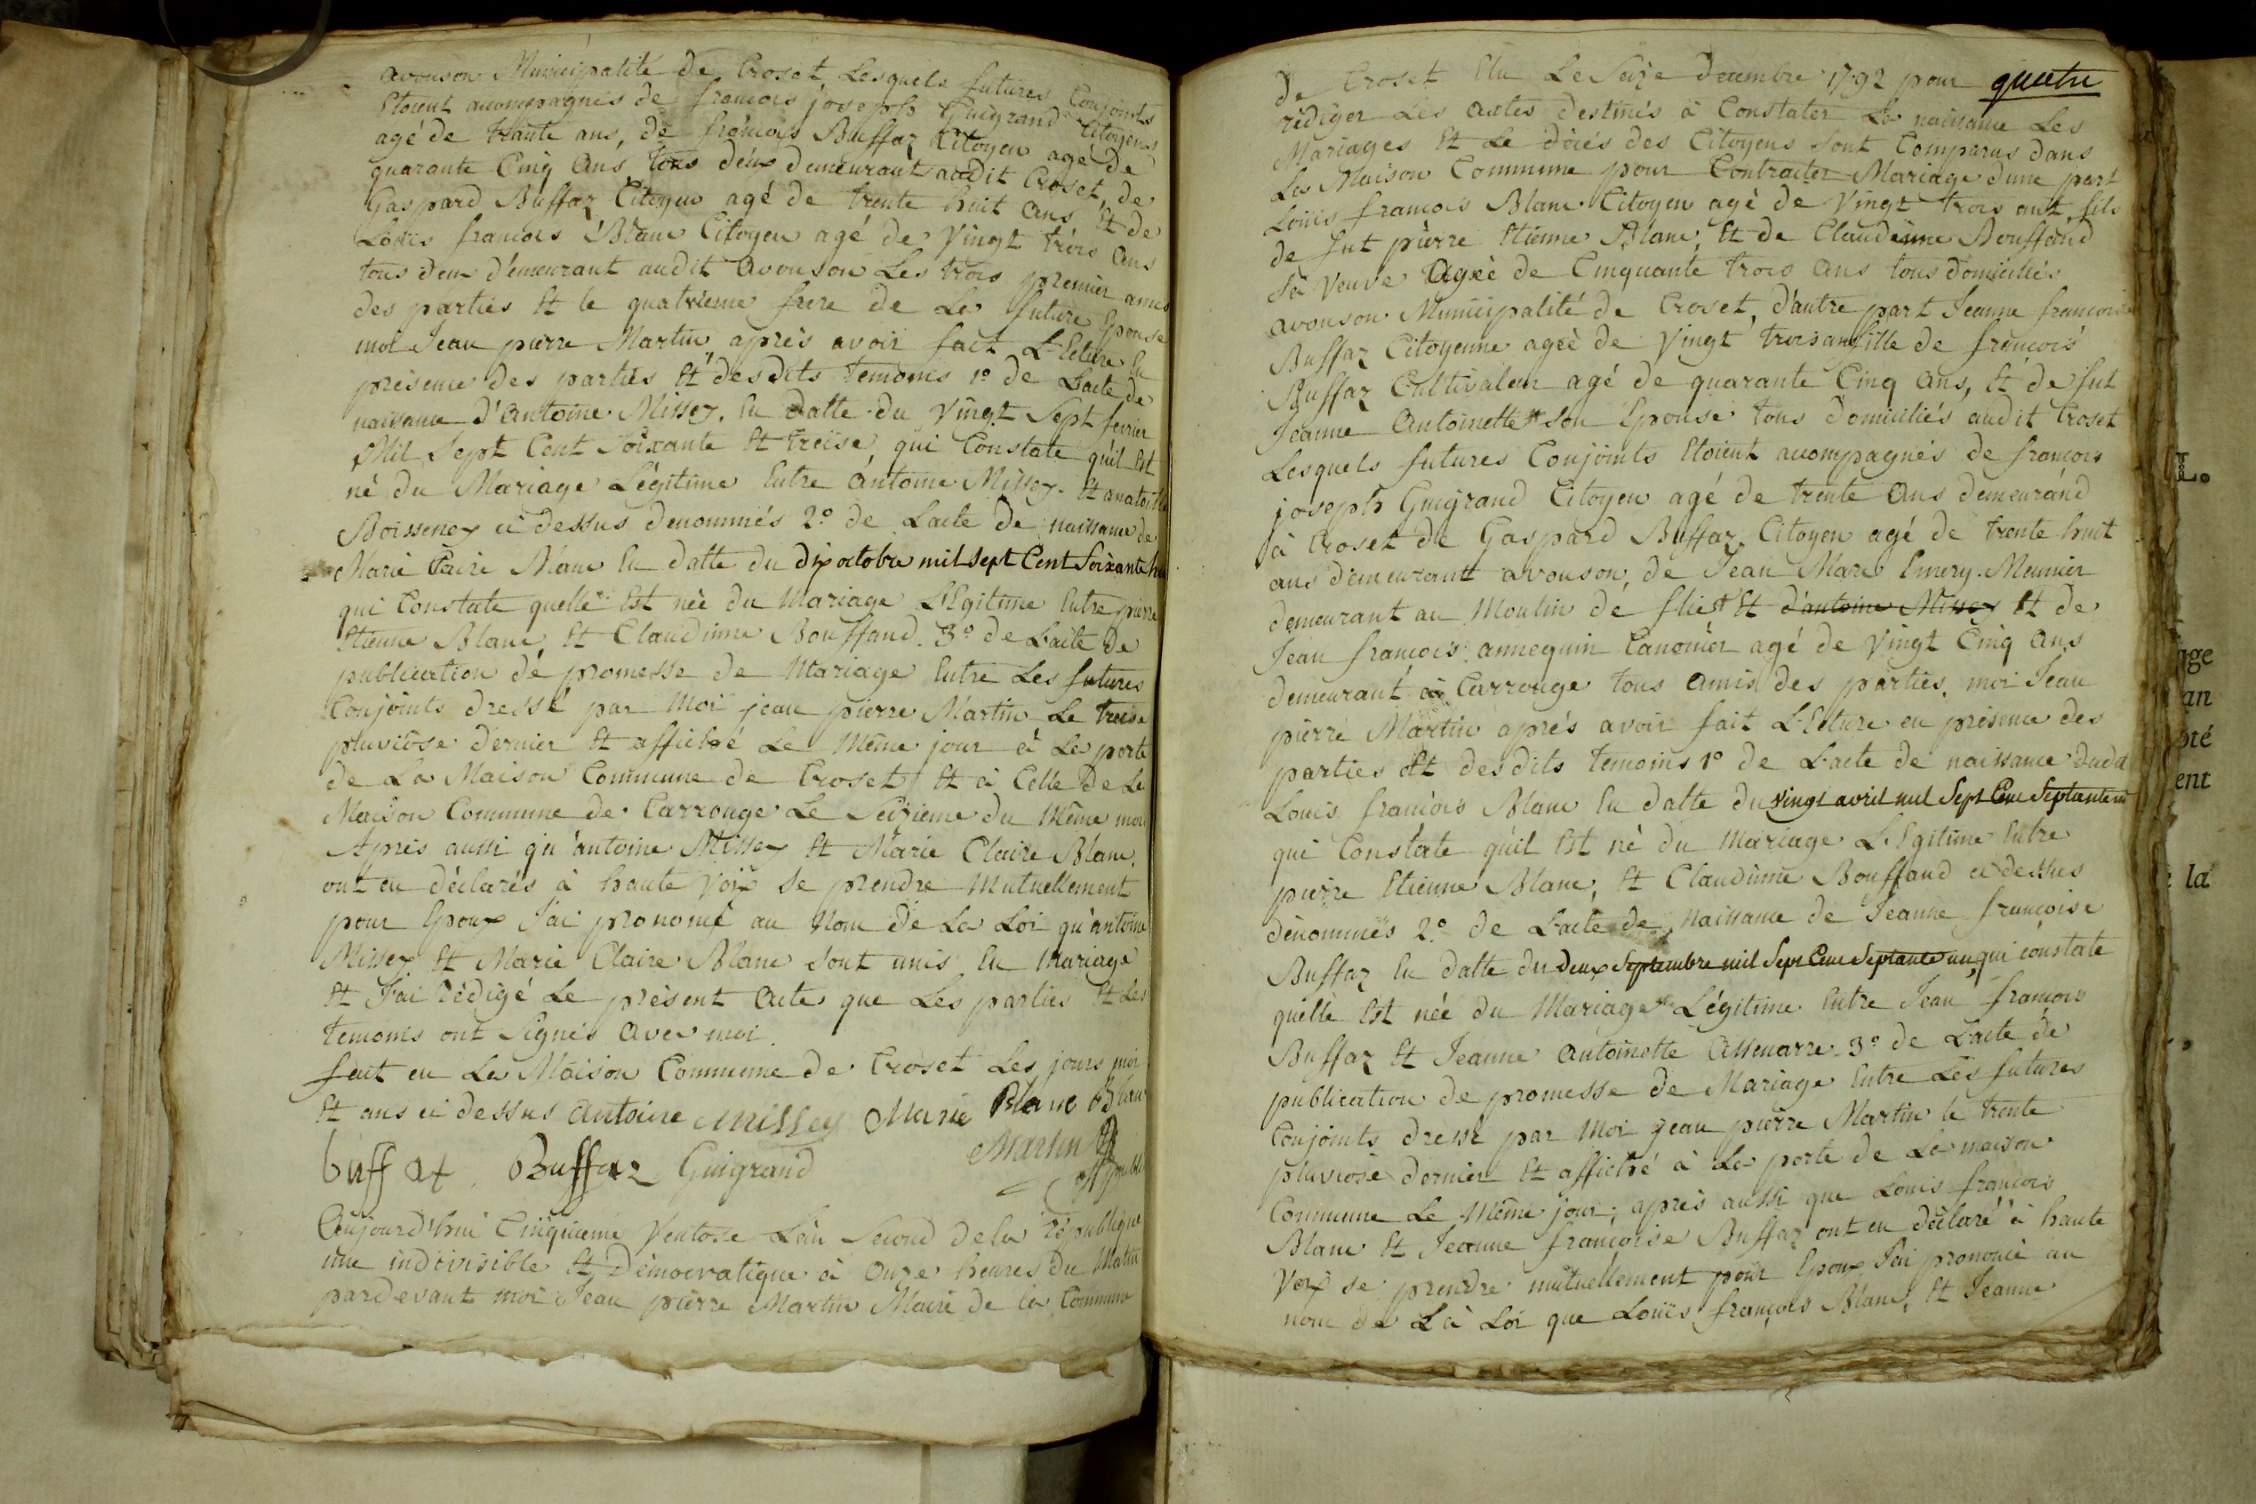 avouson Municipalité de Croset Lesquels futures Conjoints
Etoient acompagnés de francois joseph Guigrand Citoyens
agé de trante ans, de francois Buffaz Citoyen agé de
quarante Cinq ans, tous deux demeurant audit Croset, de
Gaspard Buffaz Citoyen agé de trente huit ans Et de
Loüis francois Blanc Citoyen agé de Vingt trois ans
tous deux d'emeurant audit avouson Les trois premier amis
des parties Et le quatrieme frere de La future Epouse
moi Jean pierre Martin, après avoir fait L'Ecture En
présence des parties Et desdits temoins 1º de Lacte de
naissance d'antoine Missey. En datte du Vingt Sept fevrier
Mil Sept Cent Soixante Et treise, qui Constate quil Est
né du Mariage Légitime Entre antoine Missey Et anatoille
Boissenex ci dessus denommés 2º de Lacte de naissance de
Marie Claire Blanc En datte du dix octobre mil sept Cent Soixante huit
qui Constate quelle Est née du Mariage L'Egitime Entre pierre
Etienne Blanc, Et Claudinne Bouffand. 3º de Lacte de
publication de promesse de Mariage Entre Les futures
Conjoints dressé par Moi jean pierre Martin Le treise
pluviôse dernier Et affiché Le Même jour à La porte
de La Maison Commune de Croset, Et à Celle de La
Maison Commune de Carrouge Le Seizieme du Même mois
Après aussi qu'antoine Missey Et Marie Claire Blanc
ont eu déclarés à haute Voix Se prendre Mutuellement
pour Epoux J'ai prononcé au Nom de La Loi qu'antoine
Missey Et Marie Claire Blanc sont unis En Mariage
Et J'ai rédigé Le présent acte que Les parties Et Les
temoins ont Signés avec moi.
fait en La Maison Commune de Croset Les jours moi
Et ans ci dessus antoine Missey Marie Blanc Blanc
buffax Buffaz Guigrand Martin
off public
Aujourd'hui Cinquieme Ventose L'an Second de la republique
une indivisible Et Démocratique à Onze heures du Matin
pardevant moi Jean pierre Martin Maire de La Commune
de Croset Elu Le Seize decembre 1792 pour quatre
rédiger Les actes destinés à Constater La naissance Les
Mariages Et Le déces des Citoyens Sont Comparus dans
La Maison Commune pour Contracter Mariage dune part
Louis francois Blanc Citoyen agé de Vingt trois ans, fils
de fut pierre Etienne Blanc, Et de Claudinne Bouffand
Sa Veuve Ageé de Cinquante trois ans tous domiciliés
avouson Municipalité de Croset, d'autre part Jeanne francoise
Buffaz Citoyenne ageé de Vingt trois ans fille de francois
Buffaz Cultivateur agé de quarante Cinq ans, Et de fut
Jeanne Antoinette son Epouse tous domiciliés audit Croset
Lesquels futures Conjoints Etoient acompagnés de francois
joseph Guigrand Citoyen agé de trente ans demeurand
à Croset de Gaspard Buffaz, Citoyen agé de trente huit
ans demeurant avouson, de Jean Marc Emery Meunier
demeurant au Moulin de flies Et d'antoine Missey Et de
Jean francois annequin Canonier agé de Vingt Cinq ans
demeurant à Carrouge tous amis des parties, moi Jean
pierre Martin aprés avoir fait L'Ecture en présence des
parties Et desdits temoins 1º de Lacte de naissance dudit
Louis francois Blanc En datte du vingt avril mil Sept Cent Septante un
qui Constate quil Est né du Mariage L'Egitime Entre
pierre Etienne Blanc, Et Claudinne Bouffand ci dessus
dénommés 2º de Lacte de Naissance de Jeanne françoise
Buffaz En datte du Deux Septembre mil Sept Cent Septante un, qui constate
quelle Est née du Mariage Légitime Entre Jean francois
Buffaz Et Jeanne Antoinette Assenarre 3º de Lacte de
publication de promesse de Mariage Entre Les futures
Conjoints dressé par Moi Jean pierre Martin le trente
pluviose dernier Et affiché à La porte de La maison
Commune Le Même jour, aprés aussi que Louis francois
Blanc Et Jeanne francoise Buffaz ont eu déclaré à haute
Voix se prendre mutuellement pour Epoux J'ai prononcé au
nom de La Loi que Loüis françois Blanc, Et Jeanne
L.
age
an
oté
ent
la